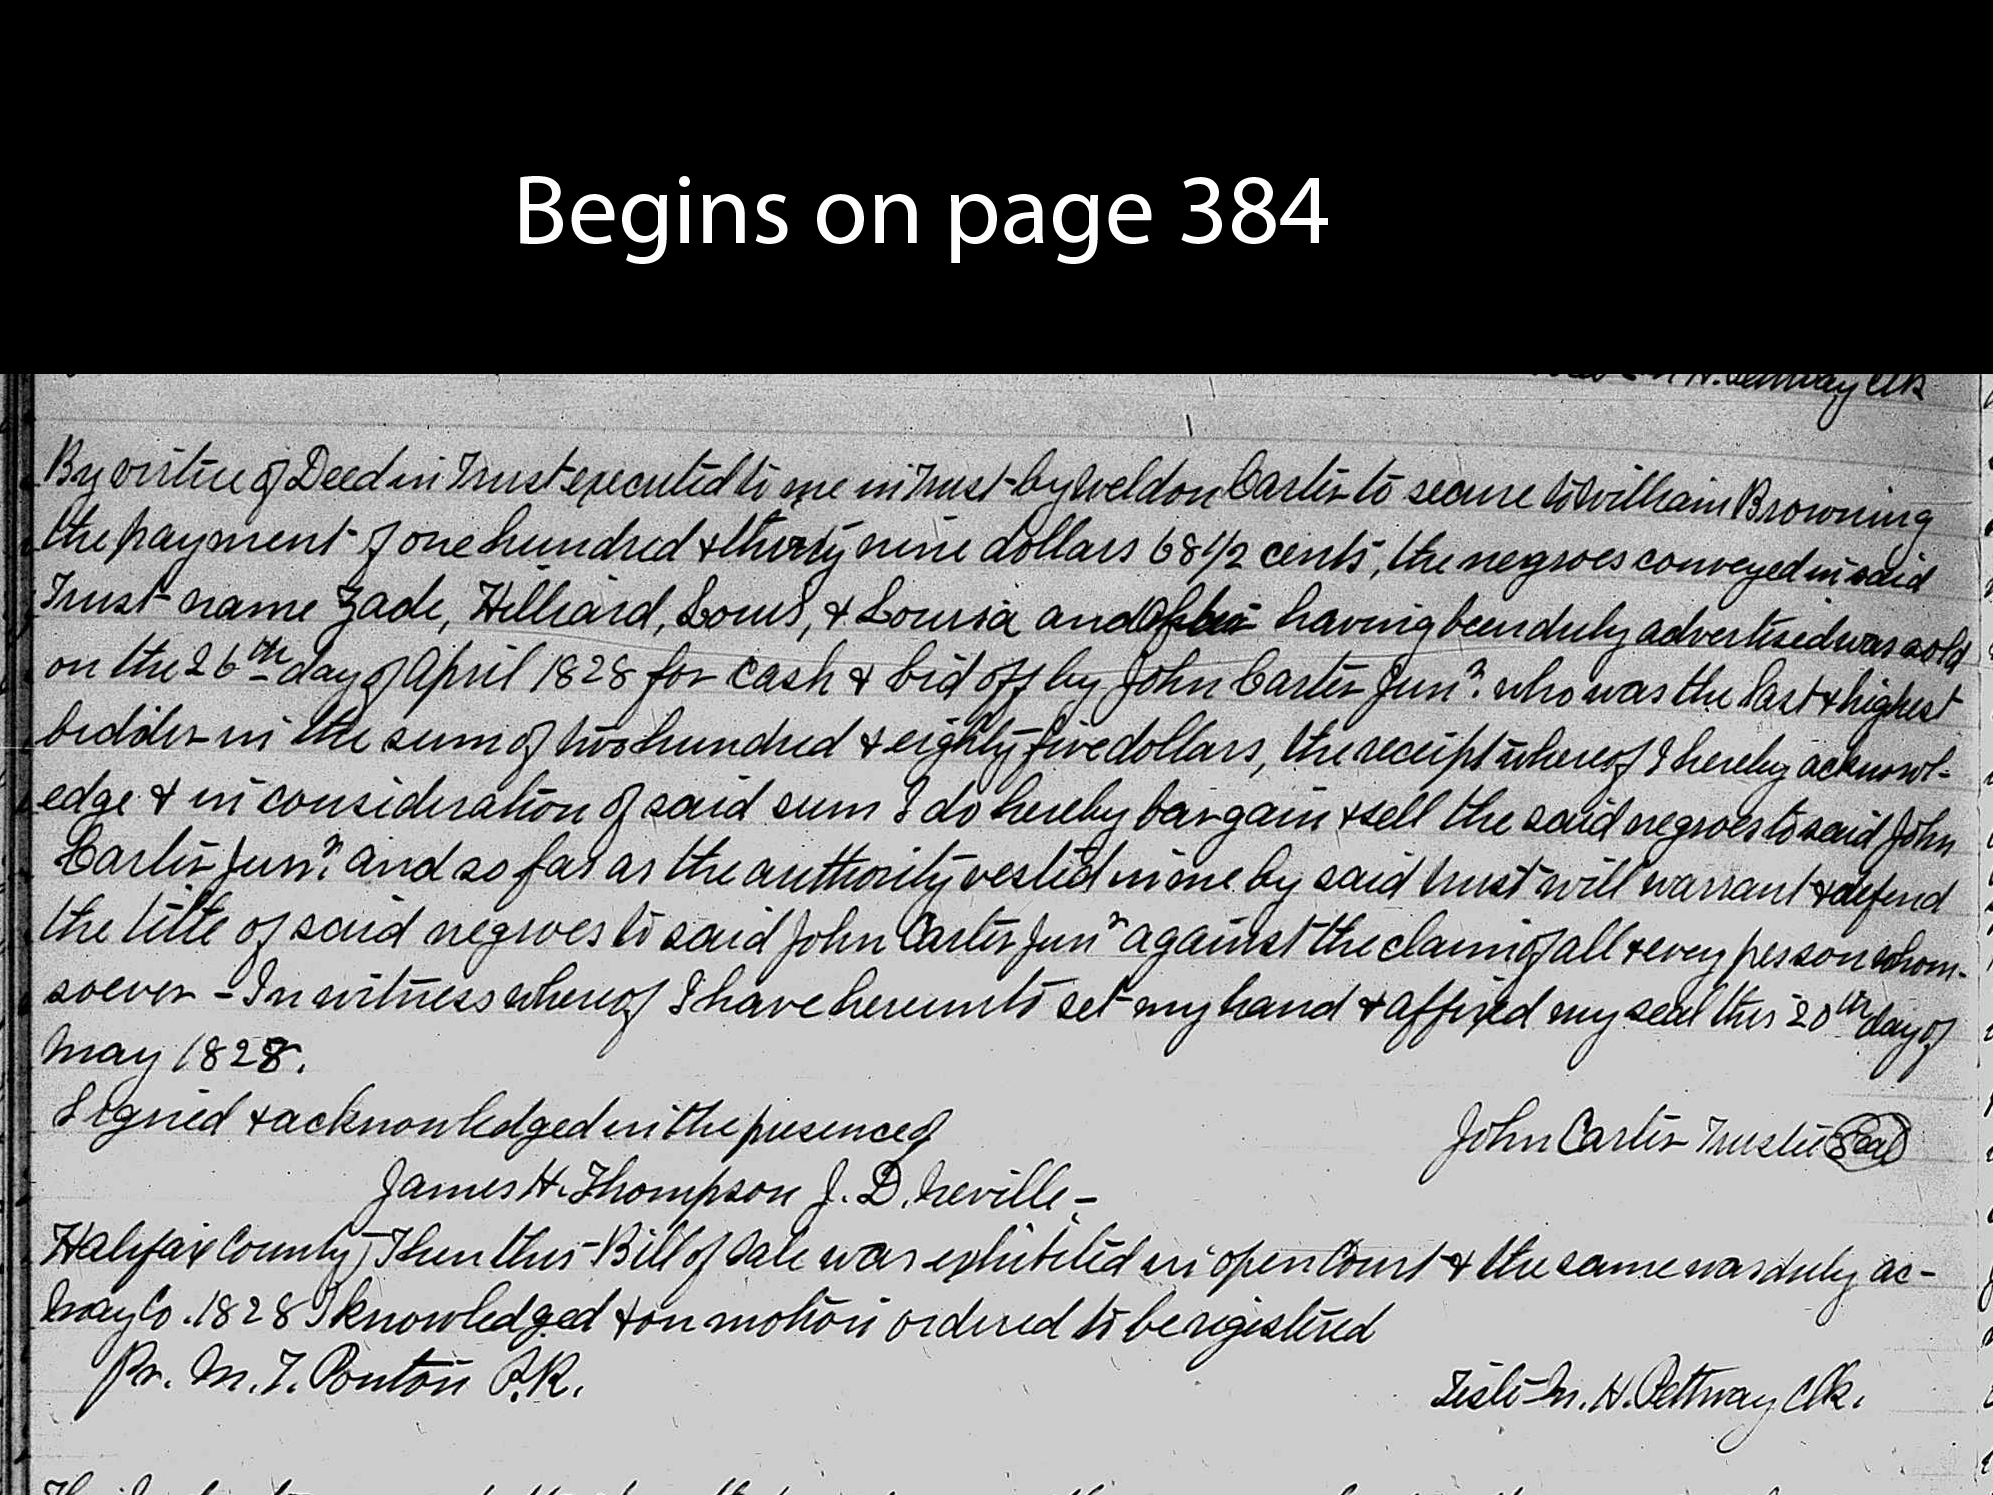 Begins on page 384
H. Pettway Clk
By virtue of Deed in Trust executed to me in Trust by Weldon Carter to secure to William Browning
the payment of one hundred & thirty nine dollars 68 1/2 cents, the negroes conveyed in said
Trust name Zade, Hilliard, Louis, & Louisa and having been duly advertised was sold
on the 26th day of April 1828 for cash & bid off by John Carter Junr. who was the last & highest
bidder in the sum of two hundred & eighty five dollars, the receipt whereof I hereby acknowl-
edge & in consideration of said sum I do hereby bargain & sell the said negroes to said John
Carter Junr. and so far as the authority vested in me by said trust will warrant & defend
the title of said negroes to said John Carter Junr against the claim of all & every person whom-
soever - In witness whereof I have hereunto set my hand & affixed my seal this 20th day of
May 1828.
Signed & acknowledged in the presence of
John Carter Trustee Seal
James H. Thompson J. D. Neville -
Halifax County } Then this Bill of Sale was exhibited in open Court & the same was duly ac-
May Co. 1828 } knowledged & on motion ordered to be registered
Pr. M. T. Ponton P.R.
Teste M. H. Pettway Clk.